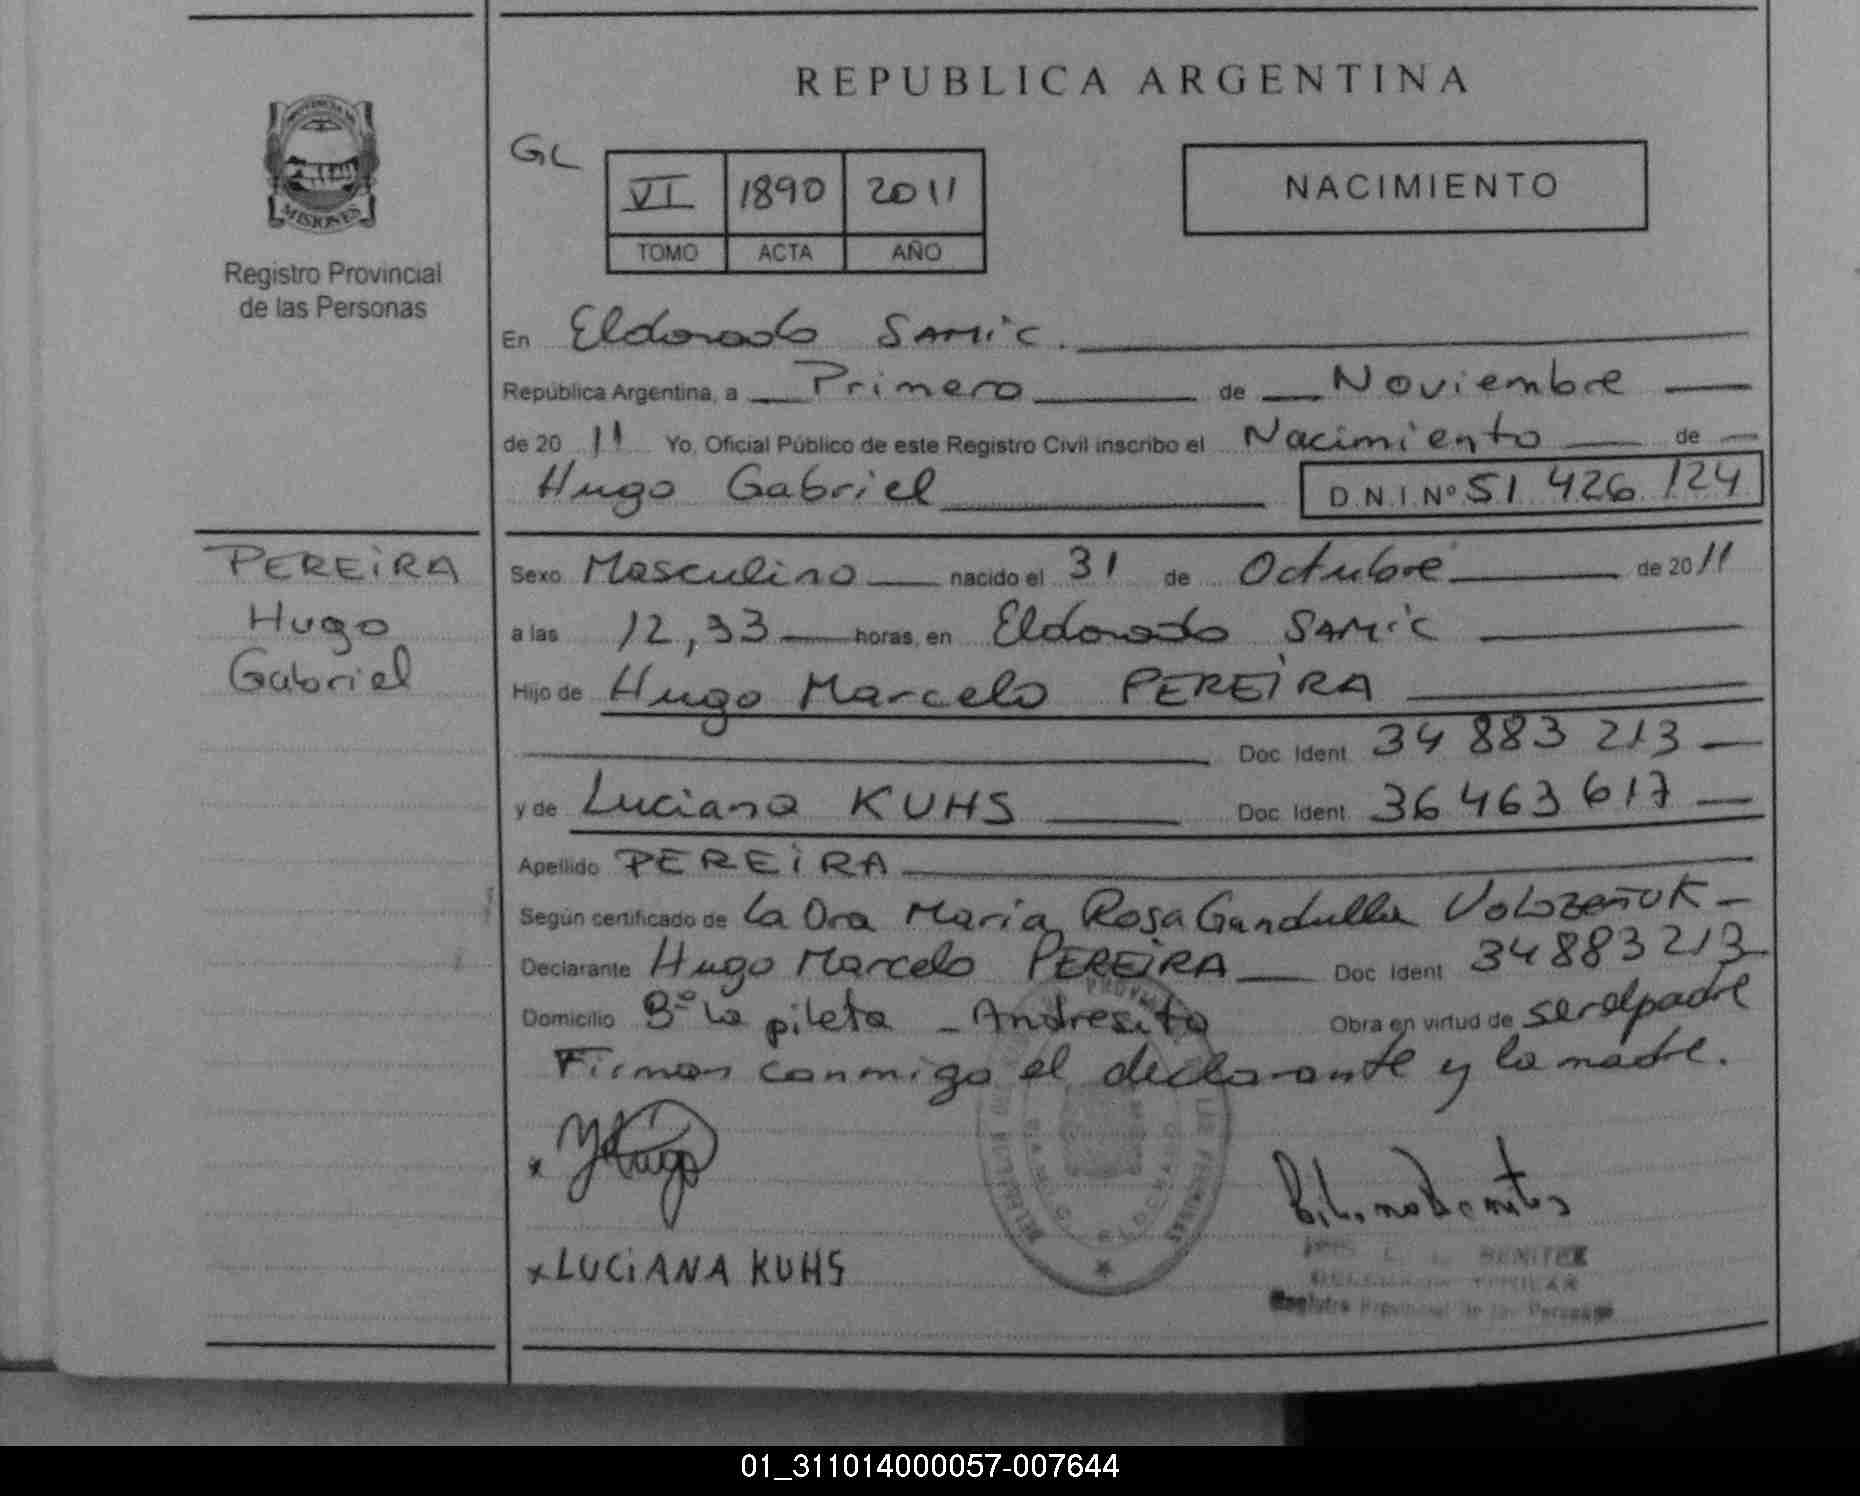 REPUBLICA ARGENTINA
PROVINCIA DE
MISIONES
Registro Provincial
de las Personas
GL
VI 1890 2011
TOMO ACTA AÑO
NACIMIENTO
En Eldorado SAMiC.
República Argentina, a Primero de Noviembre
de 20 11 Yo, Oficial Público de este Registro Civil inscribo el Nacimiento de
Hugo Gabriel D.N.I.Nº 51 426 124
PEREiRA
Hugo
Gabriel
Sexo Masculino nacido el 31 de Octubre de 20 11
a las 12,33 horas, en Eldorado SAMiC
Hijo de Hugo Marcelo PEREiRA
Doc. Ident. 34 883 213
y de Luciana KUHS Doc. Ident. 36 463 617
Apellido PEREiRA
Según certificado de la Dra María Rosa Gandulla VoLozeñuK
Declarante Hugo Marcelo PEREiRA Doc. Ident. 34 883 213
Domicilio Bº La pileta - Andresito Obra en virtud de ser el padre
Firman conmigo el declarante y la madre.
x Hugo
x LUCiANA KUHS
L. BENITEZ
DELEGADA TITULAR
Registro Provincial de las Personas
01_311014000057-007644